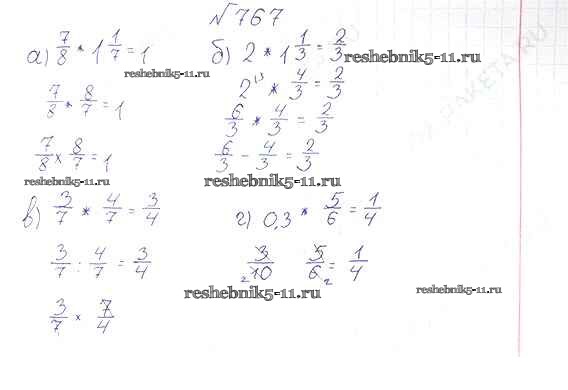 №767
а) 7/8 * 1 1/7 = 1
7/8 * 8/7 = 1
7/8 × 8/7 = 1
reshebnik5-11.ru
б) 2 * 1 1/3 = 2/3
reshebnik5-11.ru
2 * 4/3 = 2/3
6/3 * 4/3 = 2/3
6/3 - 4/3 = 2/3
reshebnik5-11.ru
reshebnik5-11.ru
в) 3/7 * 4/7 = 3/4
3/7 : 4/7 = 3/4
3/7 × 7/4
г) 0,3 * 5/6 = 1/4
3/10 5/6 = 1/4
2 2
reshebnik5-11.ru
reshebnik5-11.ru